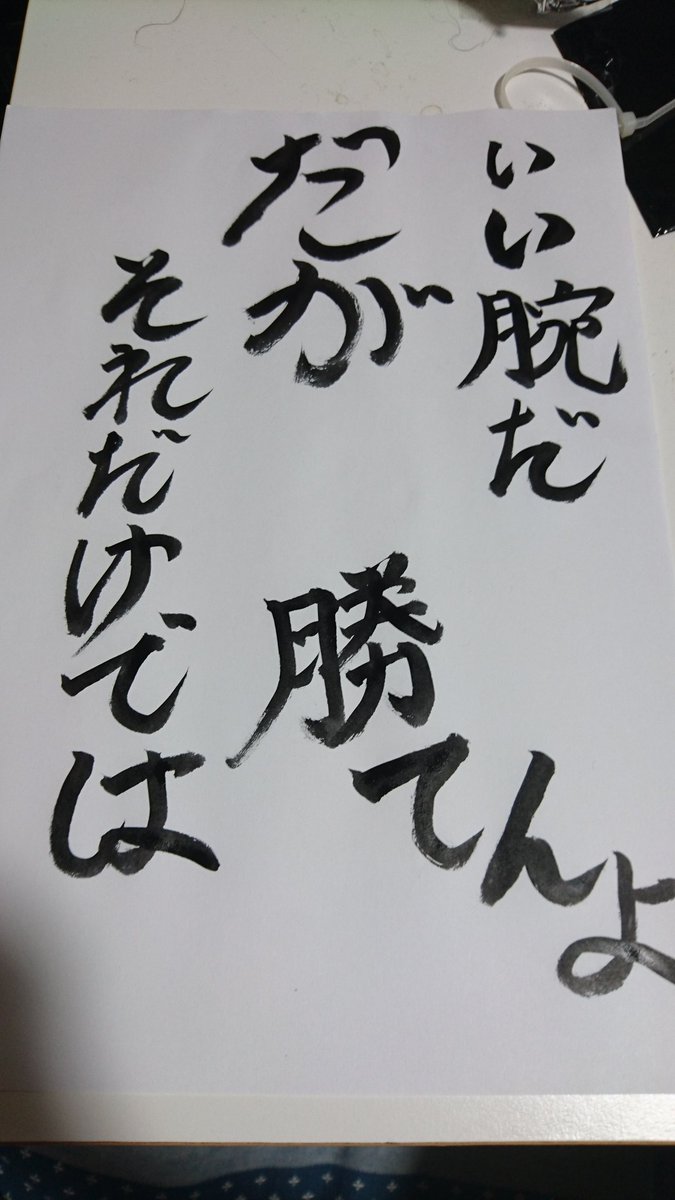 いい腕だ
だが
それだけでは
勝てんよ